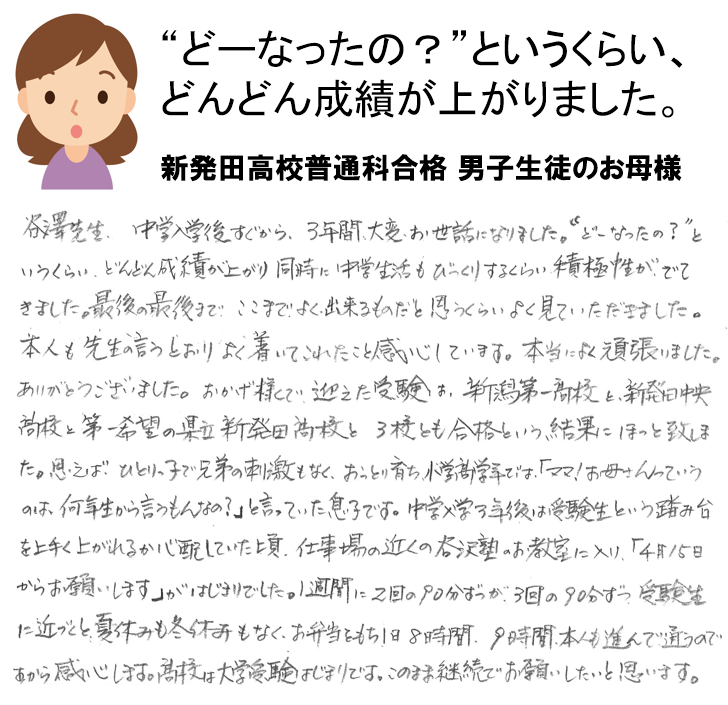 “どーなったの？”というくらい、
どんどん成績が上がりました。
新発田高校普通科合格 男子生徒のお母様
谷澤先生、中学入学後すぐから、3年間、大変お世話になりました。“どーなったの？”と
いうくらい、どんどん成績が上がり同時に中学生活もびっくりするくらい積極性がでて
きました。最後の最後まで、ここまでよく出来るものだと思うくらいよく見ていただきました。
本人も先生の言うとおりよく着いてこれたこと感心しています。本当によく頑張りました。
ありがとうございました。おかげ様で、迎えた受験は、新潟第一高校と、新発田中央
高校と第一希望の県立新発田高校と3校とも合格という、結果にほっと致しまし
た。思えば、ひとりっ子で兄弟の刺激もなく、おっとり育ち、小学高学年では、「ママ！お母さんっていう
のは、何年生から言うもんなの？」と言っていた息子です。中学入学3年後は受験生という踏み台
を上手く上がれるか心配していた頃、仕事場の近くの谷沢塾のお教室に入り、「4月15日
からお願いします」がはじまりでした。1週間に2回の90分ずつが、3回の90分ずつ、受験生
に近づくと、夏休みも冬休みもなく、お弁当ともち1日8時間、9時間、本人も進んで通うので
すから感心します。高校は大学受験はじまりです。このまま継続でお願いしたいと思います。